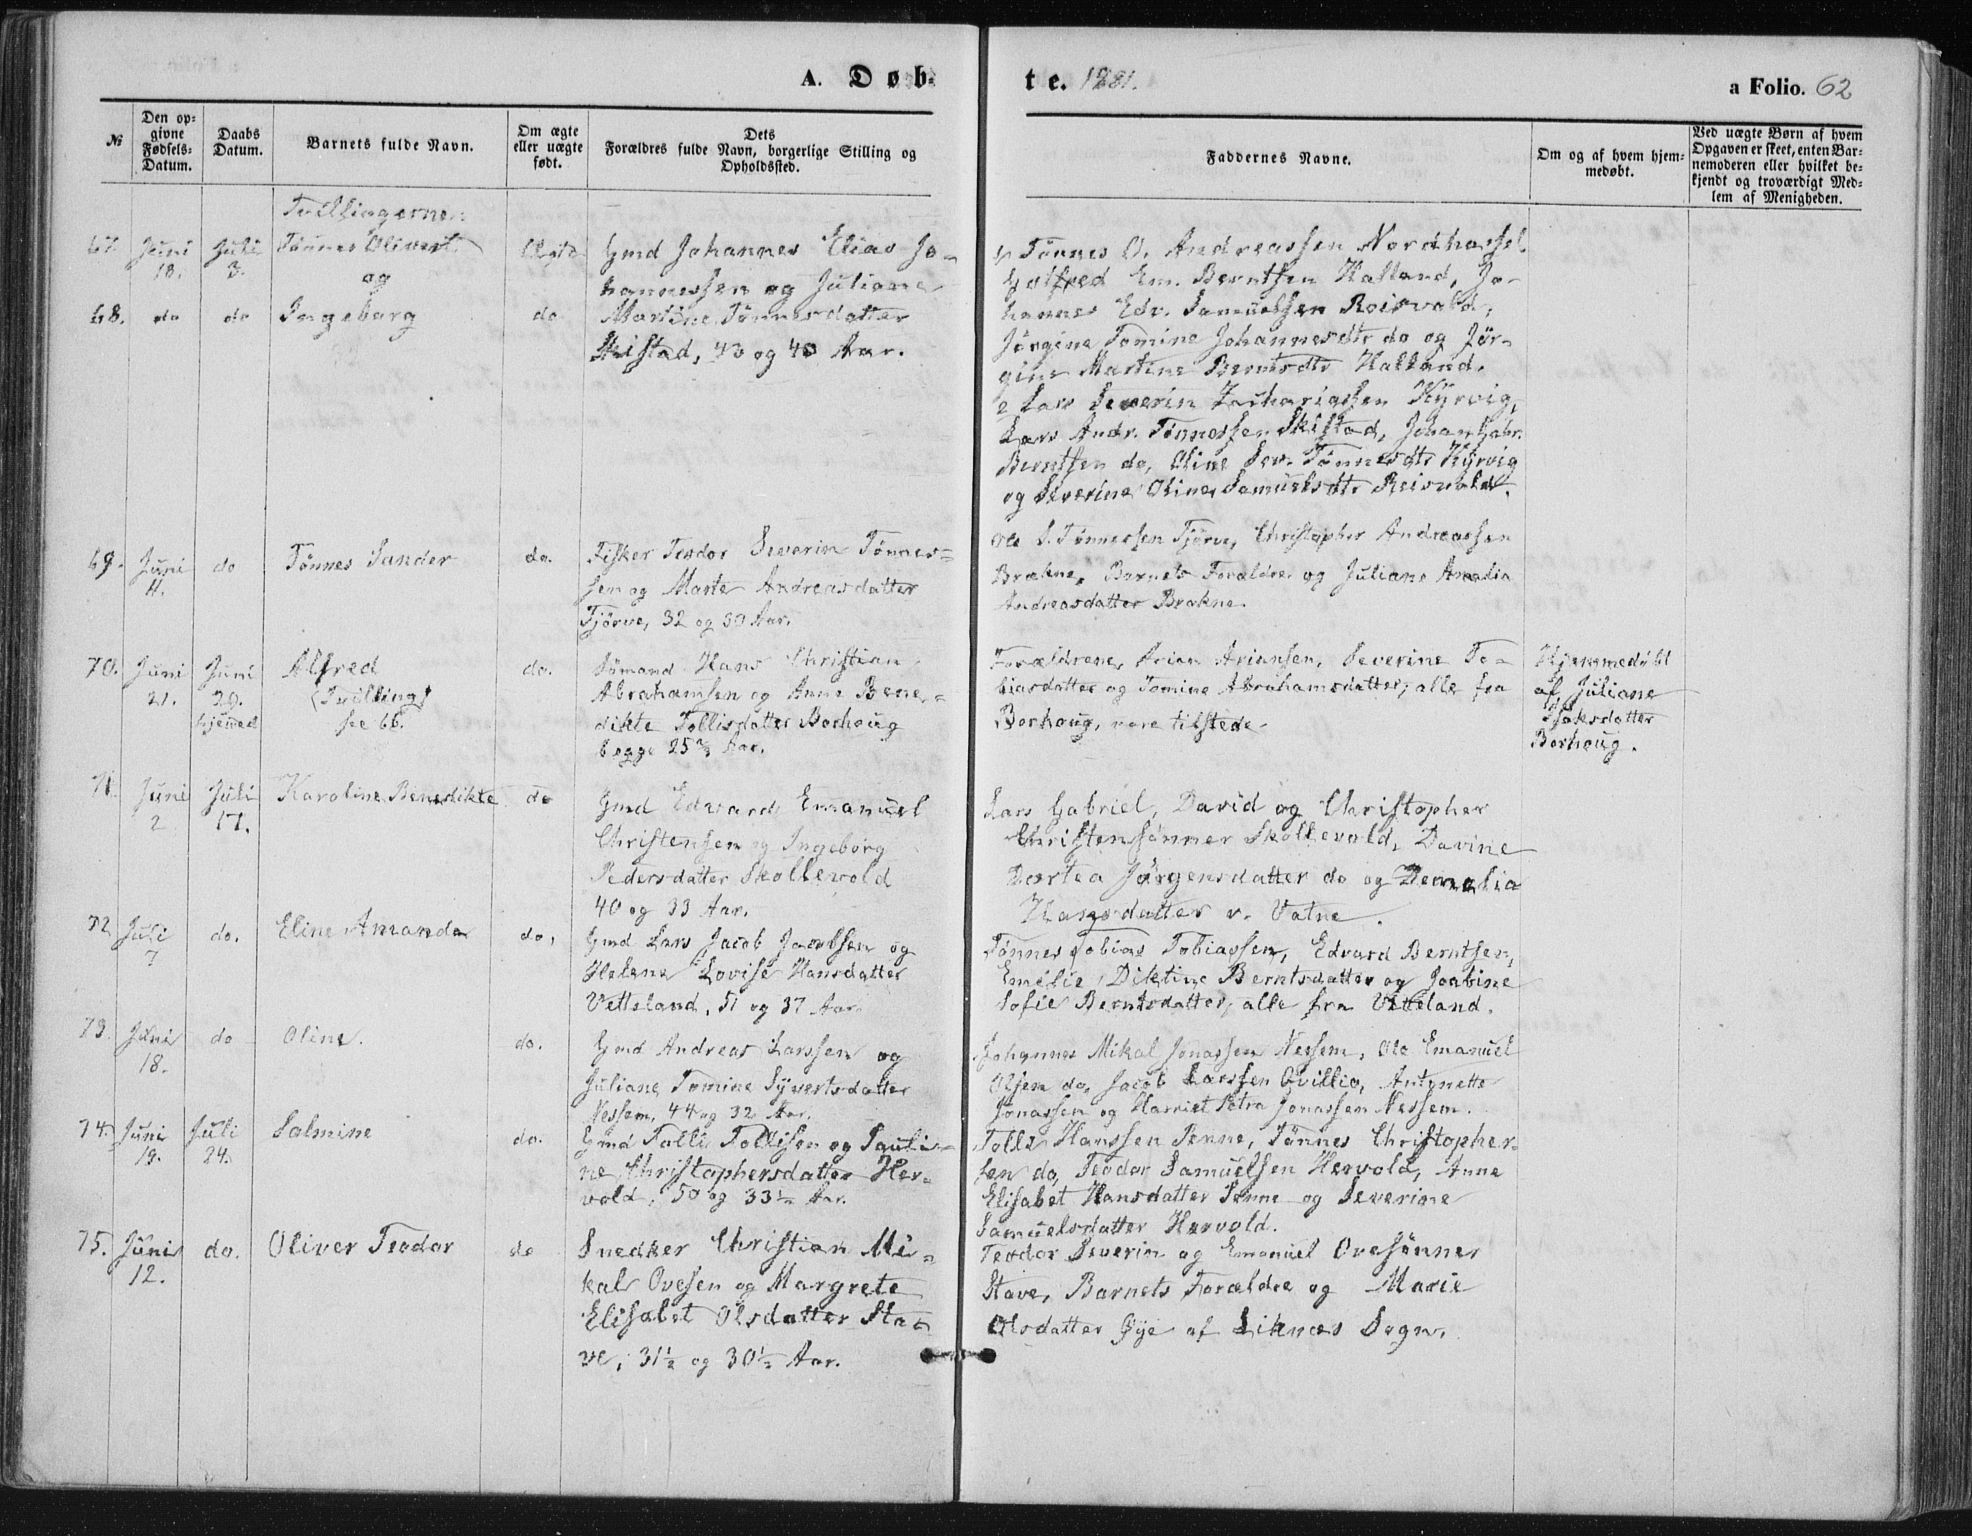 A. Døb-
te. 1881.
a Folio. 62
№
Den op-
givne
Fødsels-
Datum.
Daabs
Datum.
Barnets fulde Navn.
Om ægte
eller uægte
født.
Dets
Forældres fulde Navn, borgerlige Stilling og
Opholdssted.
Faddernes Navne.
Om og af hvem hjem-
medøbt.
Ved uægte Børn af hvem
Opgaven er skeet, enten Bar-
nemoderen eller hvilket be-
kjendt og troværdigt Med-
lem af Menigheden.
Tvillingerne:
67. Juni 18. Juli 3. Tønnes Olivert Ægte
og
68. do do Ingeborg do
Gmd Johannes Elias Jo-
hannessen og Juliane
Martine Tønnesdatter
Skistad, 43 og 40 Aar.
Tønnes O. Andreassen Nordhassel
Gotfred Em. Berntsen Halland, Jo-
hannes Edv. Samuelssen Reisvold,
Jørgine Tomine Johannesdtr do og Jør-
gine Martine Berntsdtr Halland.
2 Lars Severin Zachariassen Kyrvig,
Lars Andr. Tønnessen Skistad, Johan Gabr.
Berntsen do, Oline Sev. Tønnesdtr Kyrvig
og Severine Oline Samuelsdtr Reisvold.
69. Juni 4. do Tønnes Sander do.
Fisker Teodor Severin Tønnes-
sen og Marte Andreasdatter
Tjørve, 32 og 30 Aar.
Ole S. Tønnessen Tjørve, Christopher Andreassen
Brækne, Barnets Forældre og Juliane Amalia
Andreasdatter Brækne.
70. Juni 21. Juni 29. hjemme Alfred do.
(Tvilling)
see 66.
Sømand Hans Christian
Abrahamsen og Anne Bene-
dikte Tollisdatter Borhoug
begge 25 ⅔ Aar.
Forældrene, Arian Ariansen, Severine To-
biasdatter og Tomine Abrahamsdatter, alle fra
Borhoug, vare tilstede.
Hjemmedøbt
af Juliane
Isaksdatter
Borhoug.
71. Juni 2 Juli 17. Karoline Benedikte do
Gmd Edvard Emanuel
Christensen og Ingeborg
Pedersdatter Skollevold
40 og 33 Aar.
Lars Gabriel, David og Christopher
Christensønner Skollevold, Davine
Dortea Jørgensdatter do og
Hansdatter v. Vatne.
72. Juli 7 do. Eline Amanda do,
Gmd Lars Jacob Jacobsen og
Helene Lovise Hansdatter
Vetteland, 51 og 37 Aar.
Tønnes Tobias Tobiassen, Edvard Berntsen,
Emelie Diktine Berntsdatter og Joabine
Sofie Berntsdatter, alle fra Vetteland.
73. Juni 18. do Oline. do.
Gmd Andreas Larssen og
Juliane Tomine Syvertsdatter
Nessem, 44 og 32 Aar.
Johannes Mikal Jonassen Nessem, Ole Emanuel
Olsen do, Jacob Larssen Qvillio, Antonette
Jonassen og Harriet Petra Jonassen Nessem.
74. Juni 19. Juli 24. Salmine do.
Gmd Tolli Tollisen og Pauli-
ne Christophersdatter Her-
vold, 50 og 33½ Aar.
Tolli Hanssen Penne, Tønnes Christopher-
sen do, Teodor Samuelsen Hervold, Anne
Elisabet Hansdatter Penne og Severine
Samuelsdatter Hervold.
75. Juni 12. do. Oliver Teodor do
Snedker Christian Mi-
kal Ovesen og Margrete
Elisabet Olsdatter Sta-
ve, 31½ og 30½ Aar.
Teodor Severin og Emanuel Ovesønner
Stave, Barnets Forældre og Marie
Olsdatter Øye af Liknæs Sogn.